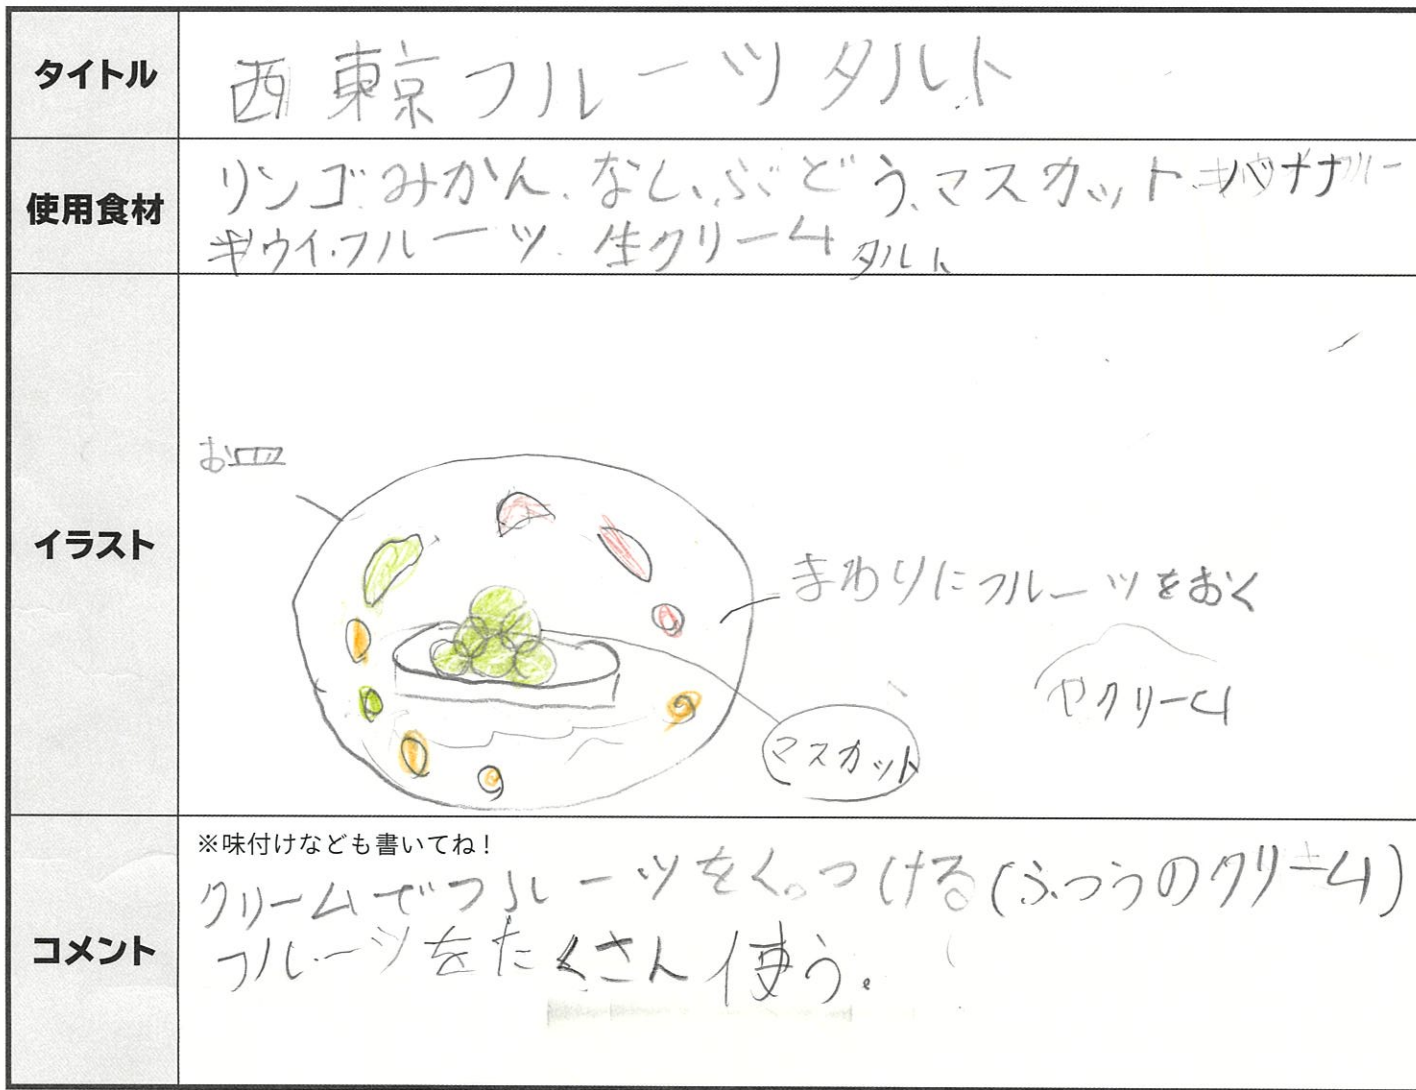 タイトル
西東京フルーツタルト
使用食材
リンゴ.みかん、なし、ぶどう、マスカット.バナナ
キウイ.フルーツ.生クリーム タルト
イラスト
お皿
まわりにフルーツをおく
やクリーム
マスカット
コメント
※味付けなども書いてね！
クリームでフルーツをくっつける(ふつうのクリーム)
フルーツをたくさん使う。